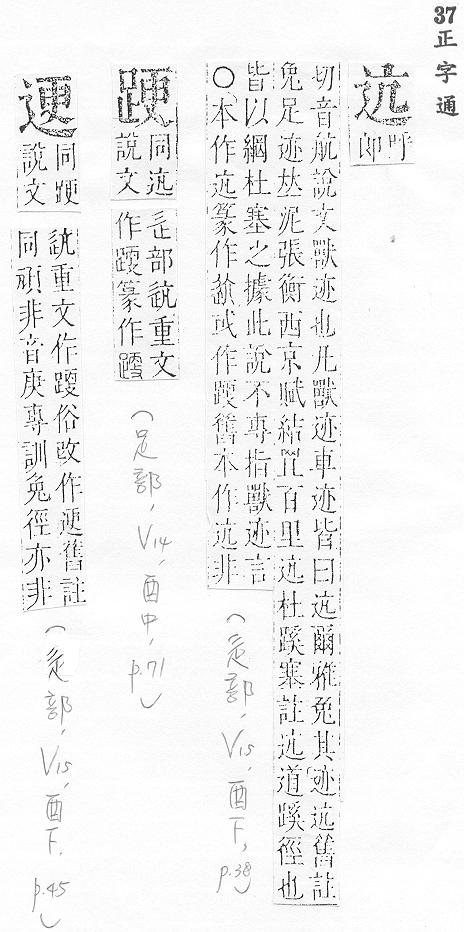 37正字通
迒
呼郎
切音航說文獸迹也凡獸迹車迹皆曰迒爾雅兔其迹迒舊註
兔足迹𠀤泥張衡西京賦結罝百里迒杜蹊塞註迒道蹊徑也
皆以網杜塞之據此說不專指獸迹言
○本作迒篆作䢚或作䠮舊本作迒非
䠮
同迒說文
辵部䢚重文
作䠮篆作䠮
(足部, V14, 酉中, p.71)
𨔞
同䠮說文
䢚重文作䠮俗改作𨔞舊註
同䢚非音庚專訓兔徑亦非
(辵部, V15, 酉下, p.38)
(辵部, V15, 酉下, p.45)